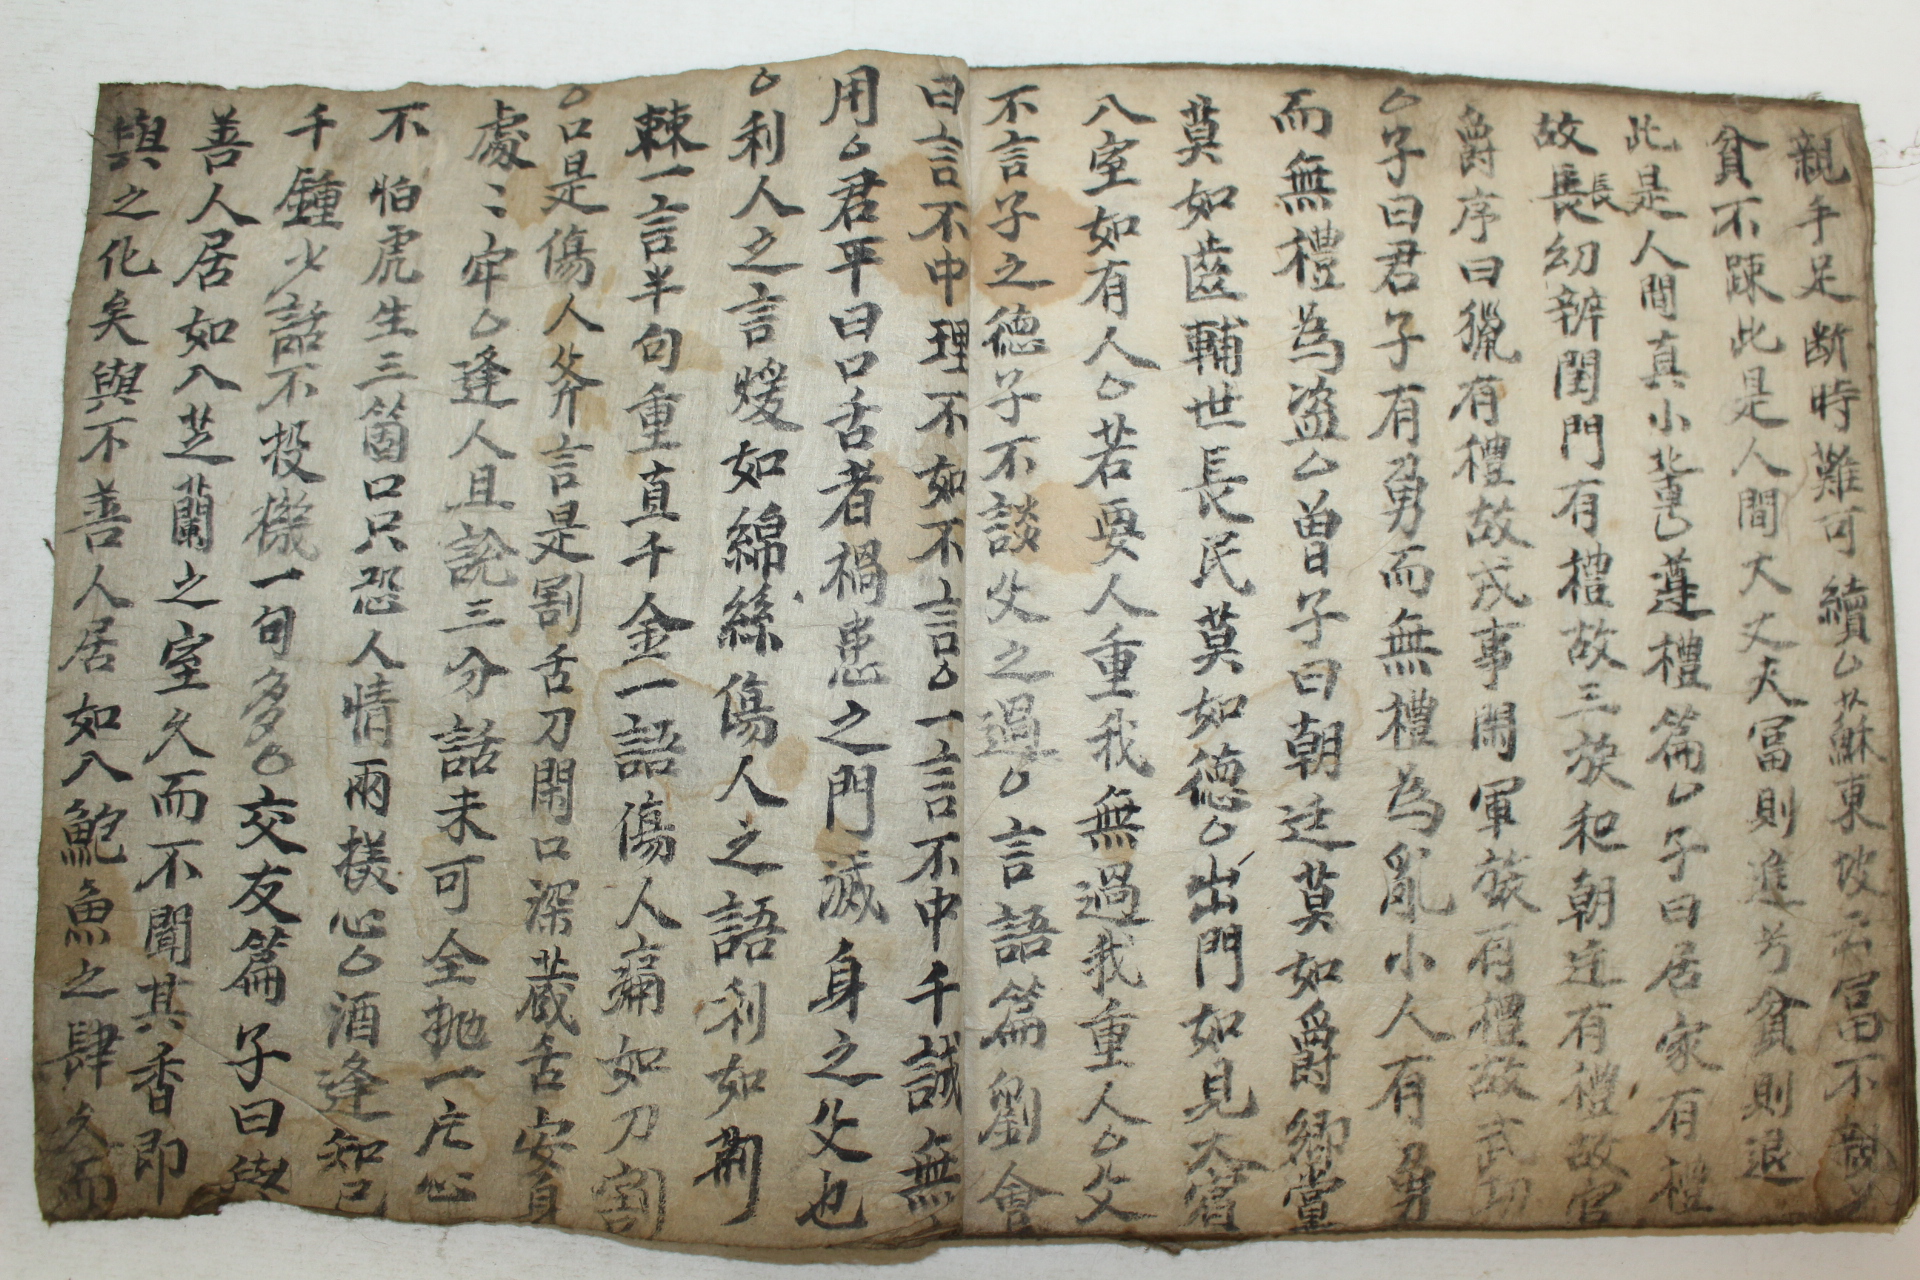 親手足断時難可續○蘇東坡云冨不親兮
貧不踈此是人間大丈夫冨則進兮貧則退
此是人間真小輩○遵禮篇○子曰居家有禮
故長長幼辨閨門有禮故三族和朝廷有禮故官
爵序曰獵有禮故戎事閑軍旅有禮故武功
○子曰君子有勇而無禮為亂小人有勇
而無禮為盗○曽子曰朝廷莫如爵鄉黨
莫如齒輔世長民莫如德○出門如見大賔
入室如有人○若要人重我無過我重人○父
不言子之德子不談父之過○言語篇劉會
曰言不中理不如不言○一言不中千誠無
用○君平曰口舌者禍患之門滅身之父也
○利人之言煖如綿絲傷人之語利如荆
棘一言半句重直千金一語傷人痛如刀割
○口是傷人斧言是割舌刀閉口深蔵舌安身
處〻牢○逢人且說三分話未可全抛一片心
不怕虎生三箇口只恐人情兩樣心○酒逢知己
千鍾少話不投機一句多○交友篇子曰與
善人居如入芝蘭之室久而不聞其香即
與之化矣與不善人居如入鮑魚之肆久而